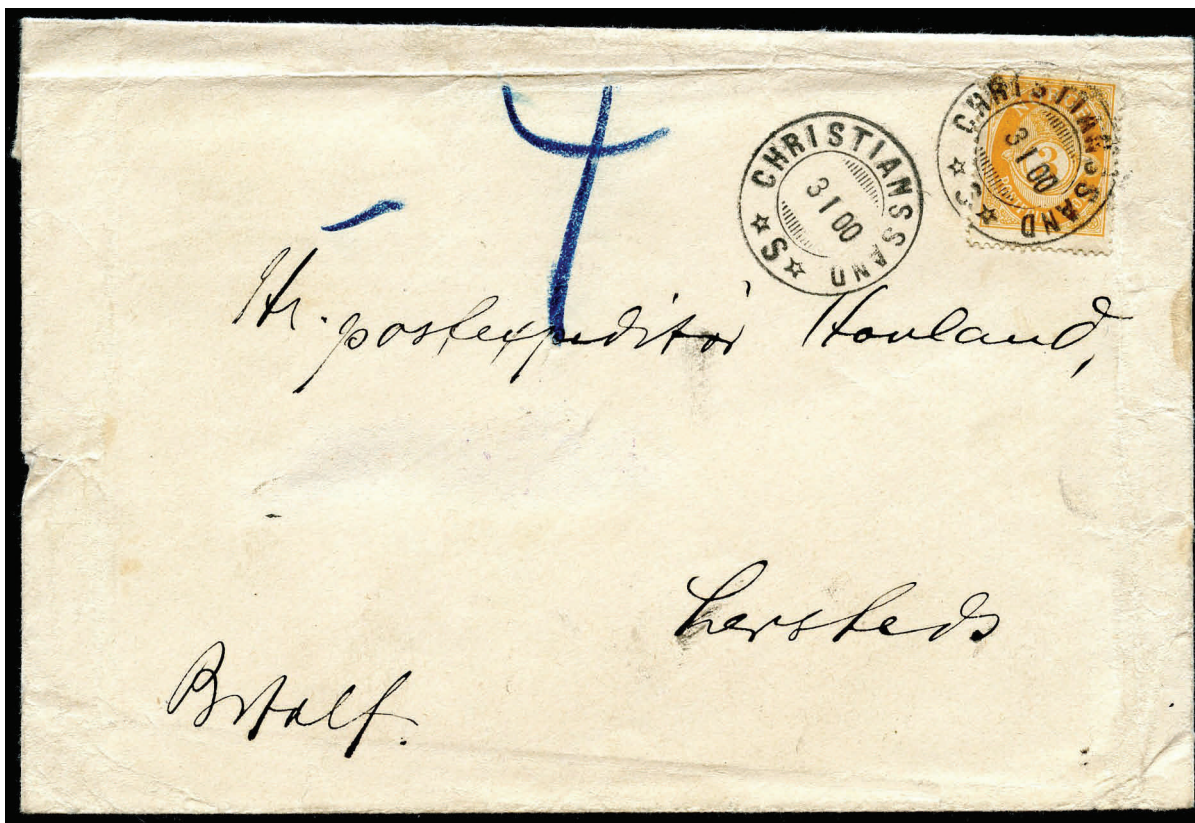 4
CHRISTIANSSAND
S
3 I 00
CHRISTIANSSAND
S
3 I 00
3
Hr. postexpeditör Hovland,
Brtalt.